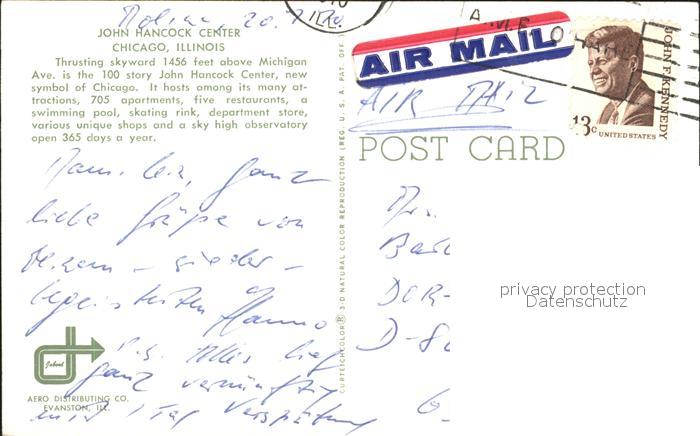 20. 7. 70
JOHN HANCOCK CENTER
CHICAGO, ILLINOIS
Thrusting skyward 1456 feet above Michigan
Ave. is the 100 story John Hancock Center, new
symbol of Chicago. It hosts among its many at-
tractions, 705 apartments, five restaurants, a
swimming pool, skating rink, department store,
various unique shops and a sky high observatory
open 365 days a year.
ganz
liebe Grüße von
wieder-
begeisterten Hanno
P.S. Alles lief
ganz vernünftig
mit 1 Tag Verspätung
Jabert
AERO DISTRIBUTING CO.
EVANSTON, ILL.
CURTEICHCOLOR® 3-D NATURAL COLOR REPRODUCTION (REG. U.S.A. PAT. OFF.)
AIR MAIL
AIR MAIL
JOHN F. KENNEDY
13c
UNITED STATES
POST CARD
D-8
privacy protection
Datenschutz